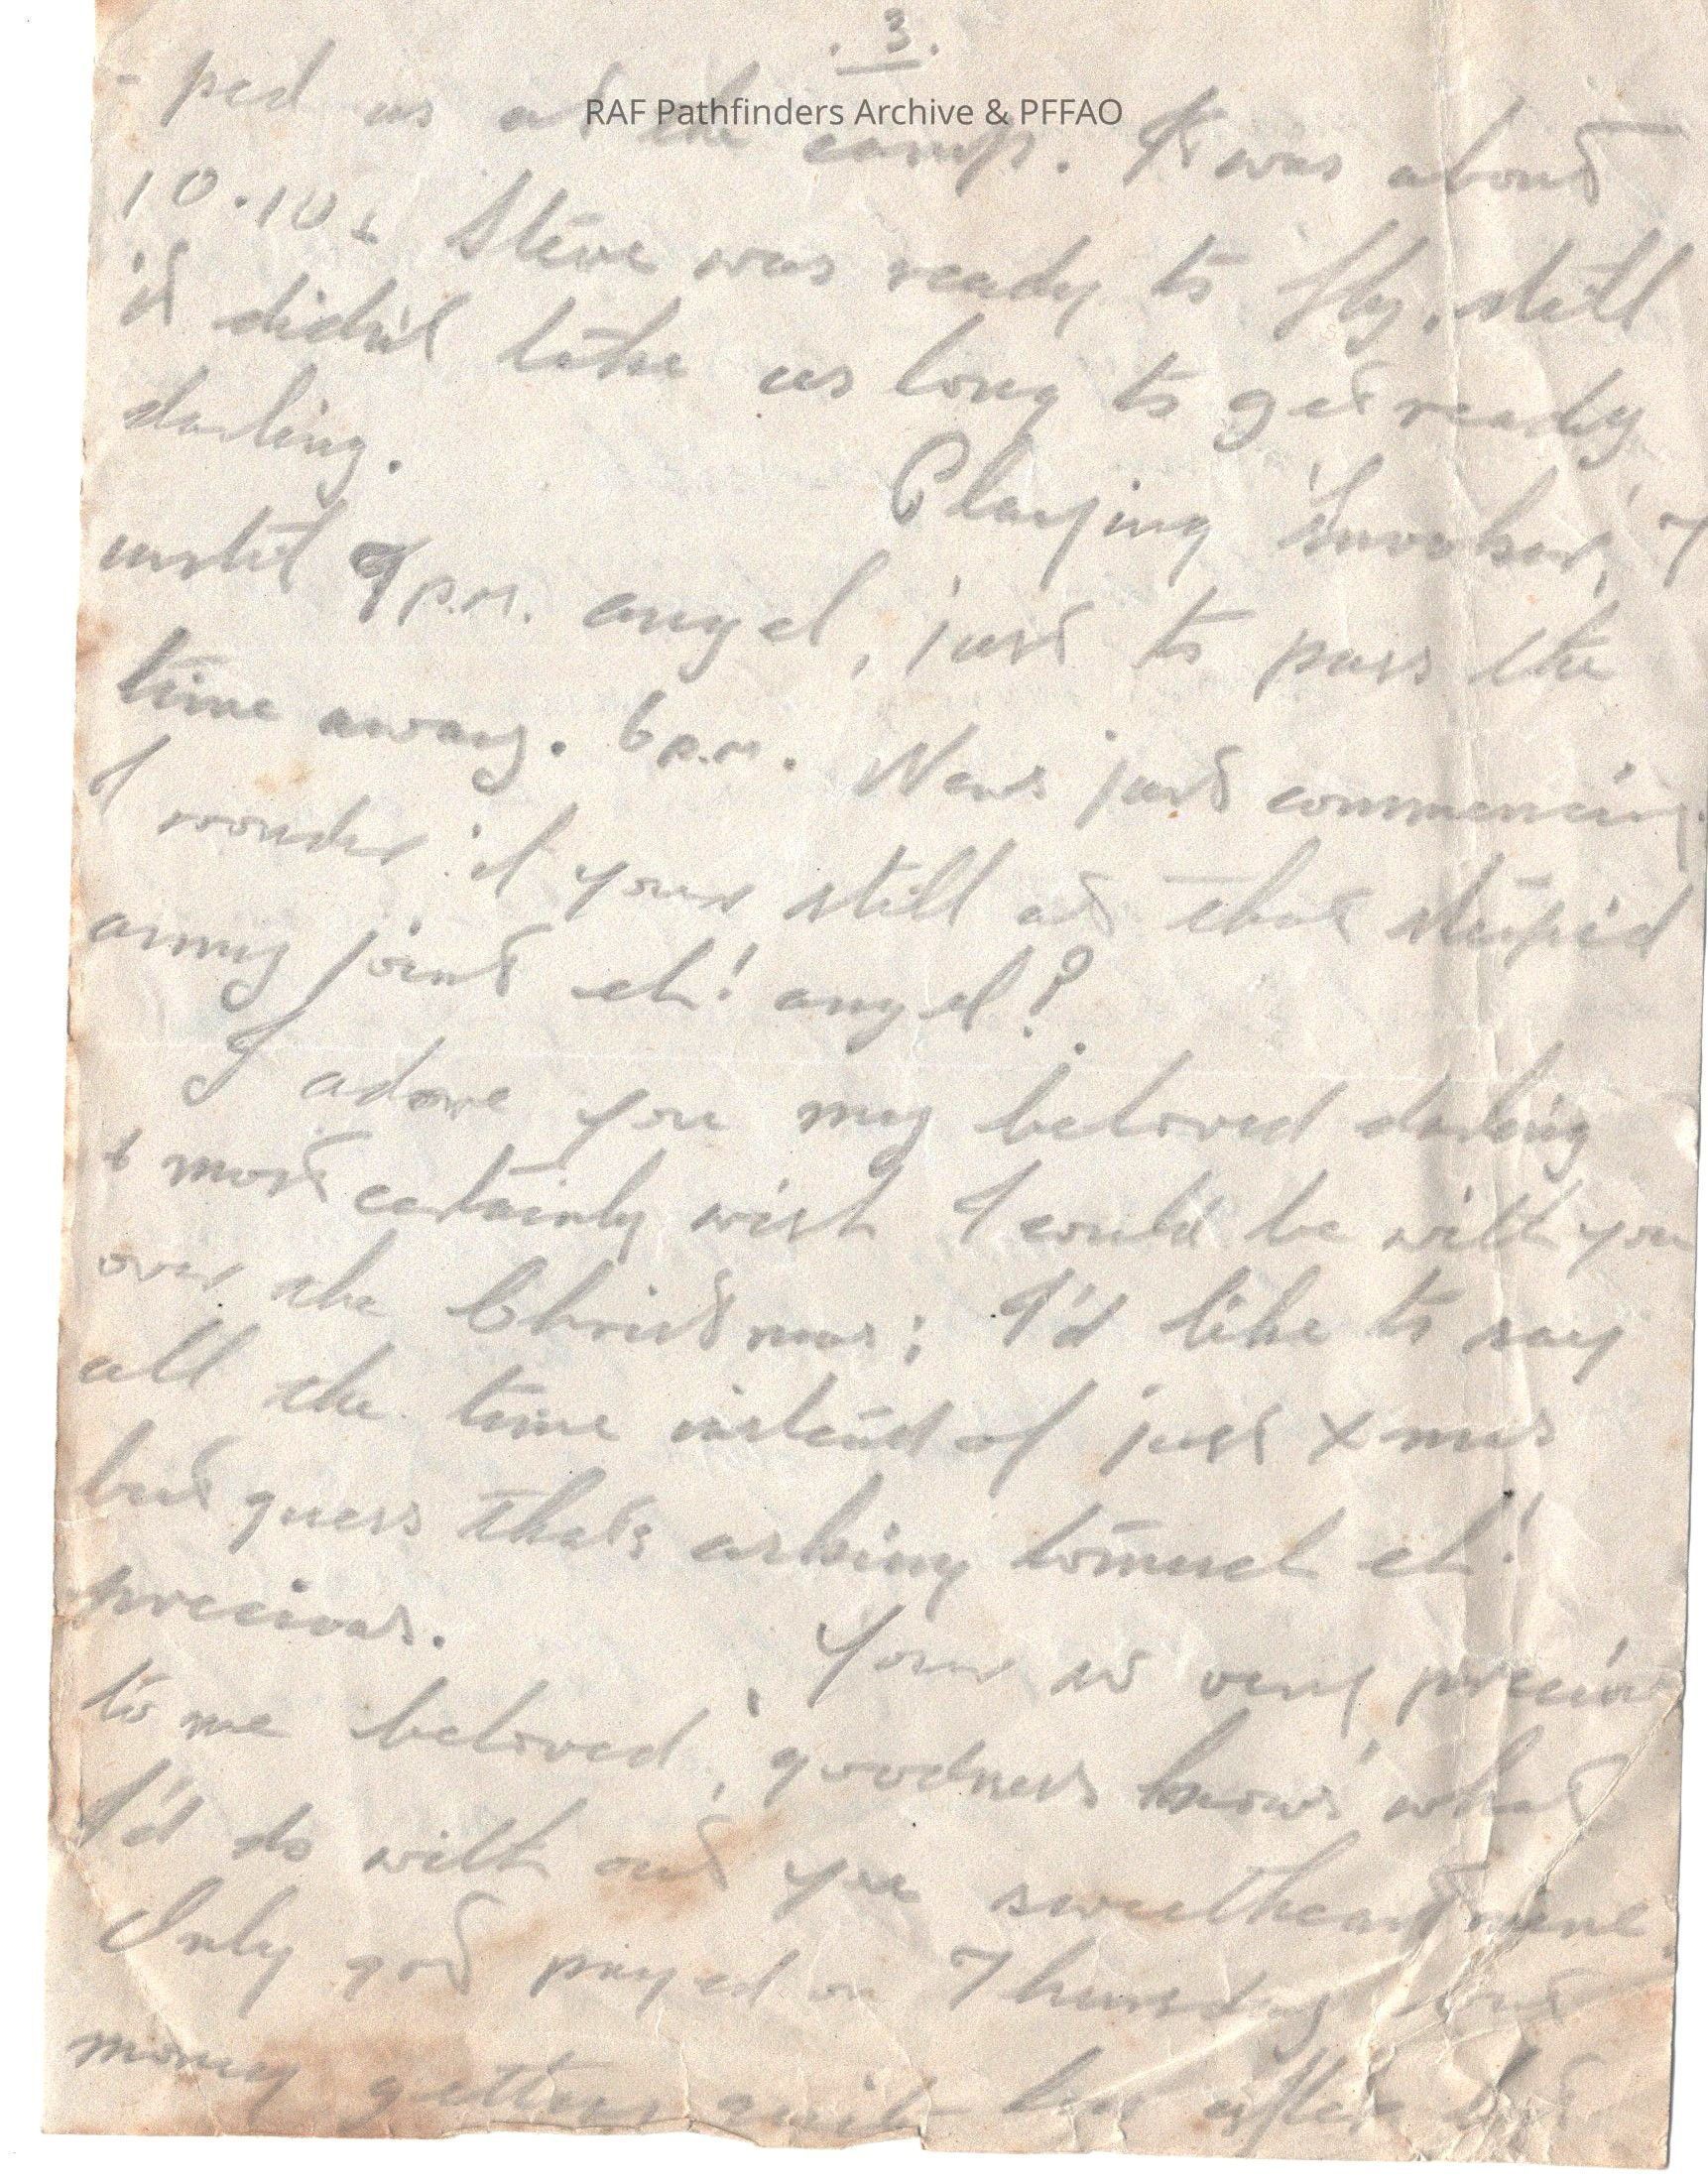 . 3 .
RAF Pathfinders Archive & PFFAO
- ped us at the camp. It was about
10.10 & Steve was ready to fly, still
it didn't take us long to get ready
darling.
Playing 'Snooker',
until 9 p.m. angel, just to pass the
time away. 6 p.m. News just commencing.
I wonder if your still at that stupid
army joint eh! angel?
I adore you my beloved darling
& most certainly wish I could be with you
over the Christmas; I'd like to say
all the time instead of just Xmas
but guess that's asking to much eh!
precious.
Your so very precious
to me beloved, goodness knows what
I'd do with out you sweetheart mine.
Only got payed on Thursday
money getting quite low after